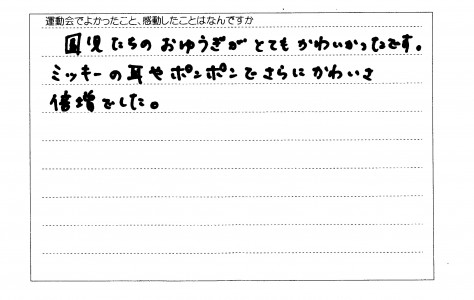 運動会でよかったこと、感動したことはなんですか
園児たちのおゆうぎがとてもかわいかったです。
ミッキーの耳やポンポンでさらにかわいさ
倍増でした。